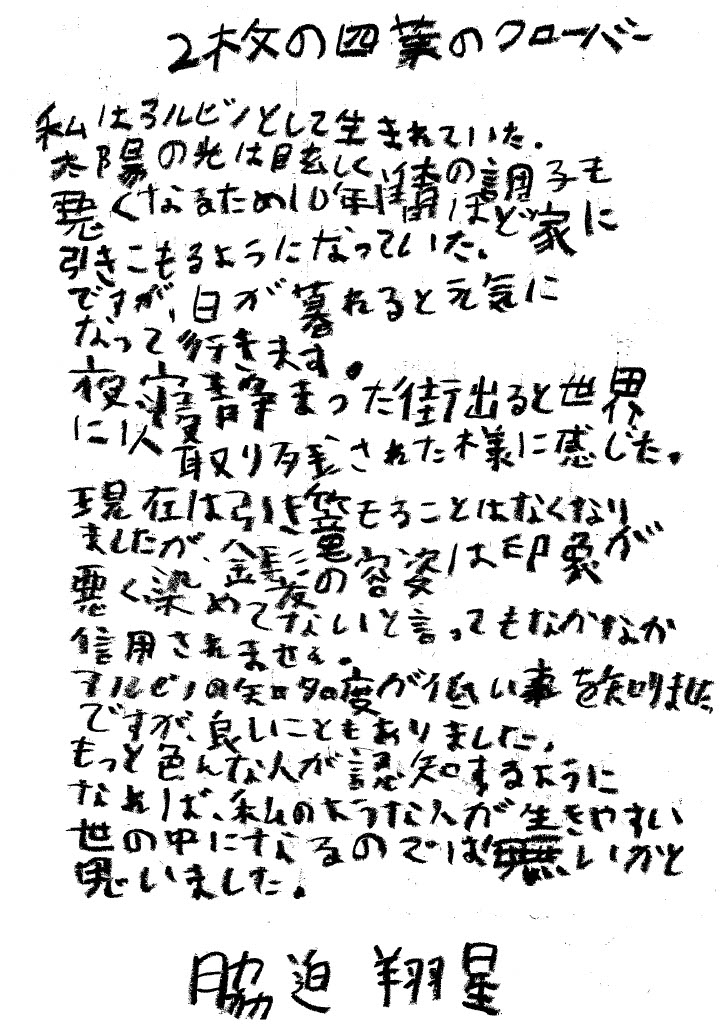 2枚の四葉のクローバー
私はアルビノとして生まれていた。
太陽の光は眩しく体の調子も
悪くなるため10年間ほど家に
引きこもるようになっていた。
ですが、日が暮れると元気に
なって行きます。
夜、寝静まった街出ると世界
に1人取り残された様に感じた。
現在は引き篭もることはなくなり
ましたが、金髪の容姿は印象が
悪く染めてないと言ってもなかなか
信用されません。
アルビノの知名度が低い事を知りました
ですが、良いこともありました。
もっと色んな人が認知するように
なれば、私のような人が生きやすい
世の中になるのでは無いかと
思いました。
脇迫 翔星